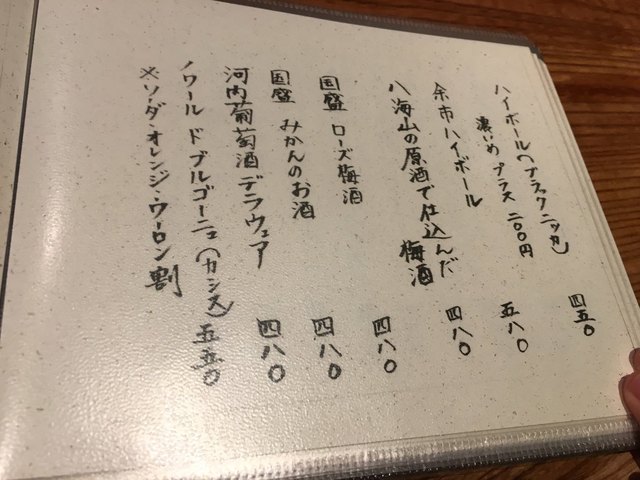 ハイボール(ブラックニッカ) 四五〇
濃いめ プラス 二〇〇円
余市ハイボール 五八〇
八海山の原酒で仕込んだ
梅酒 四八〇
国盛 ローズ梅酒 四八〇
国盛 みかんのお酒 四八〇
河内葡萄酒 デラウェア 四八〇
ノワール ド ブルゴーニュ(カシス) 五五〇
※ソーダ・オレンジ・ウーロン割